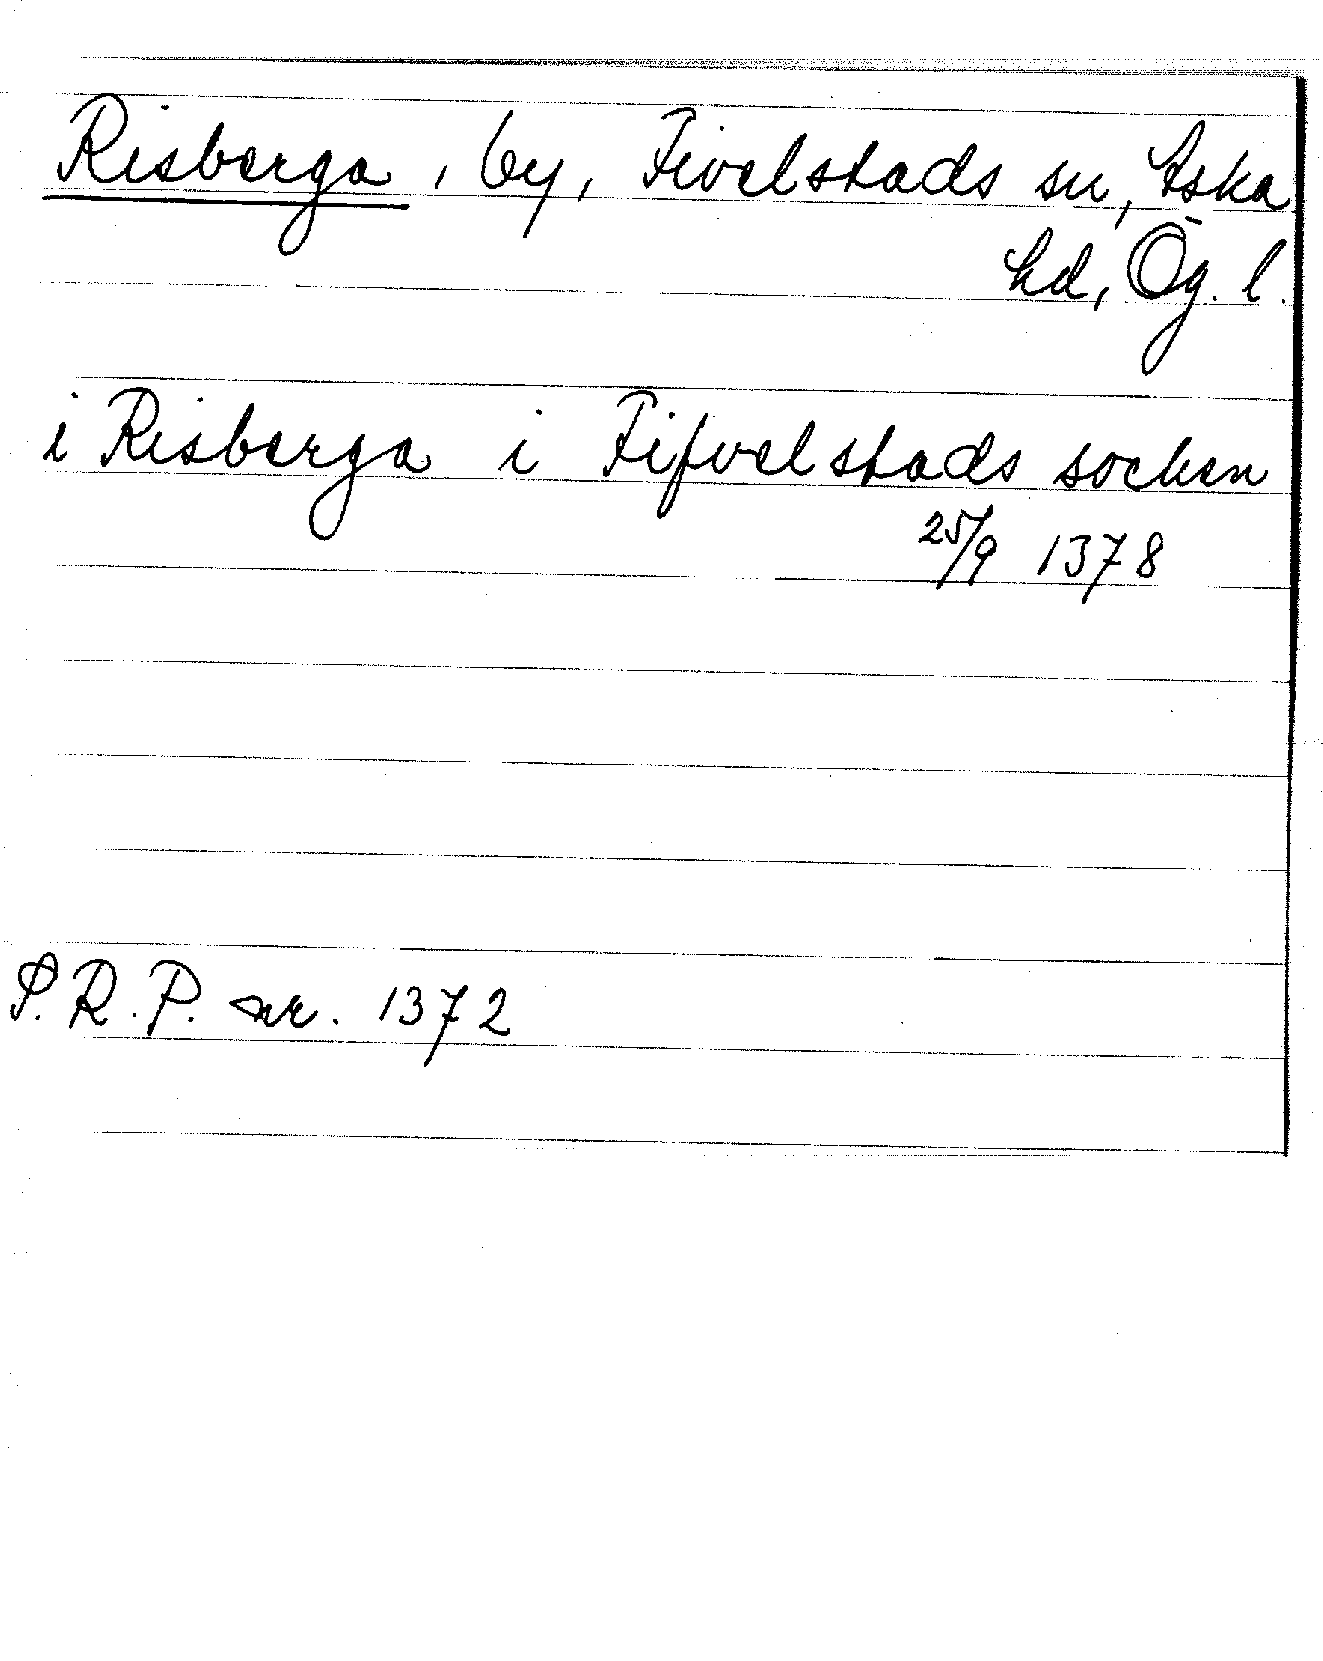 Risberga, by, Fivelstads sn, Aska
hd, Ög. l.
i Risberga i Fifvelstads socken
25/9 1378
S.R.P. nr. 1372